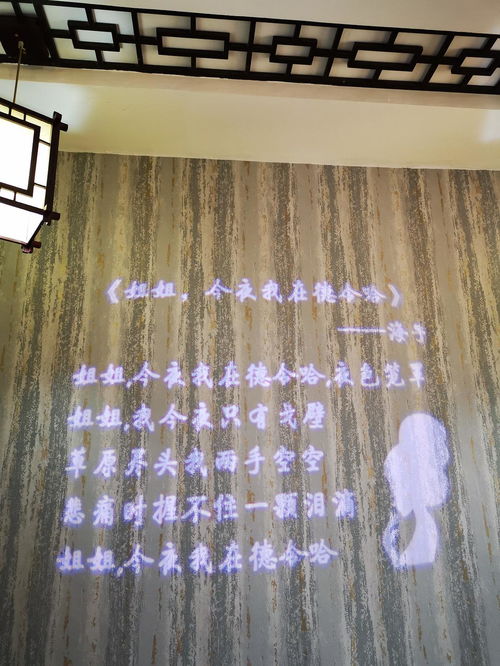 《姐姐,今夜我在德令哈》
——海子
姐姐,今夜我在德令哈,夜色笼罩
姐姐,我今夜只有戈壁
草原尽头我两手空空
悲痛时握不住一颗泪滴
姐姐,今夜我在德令哈